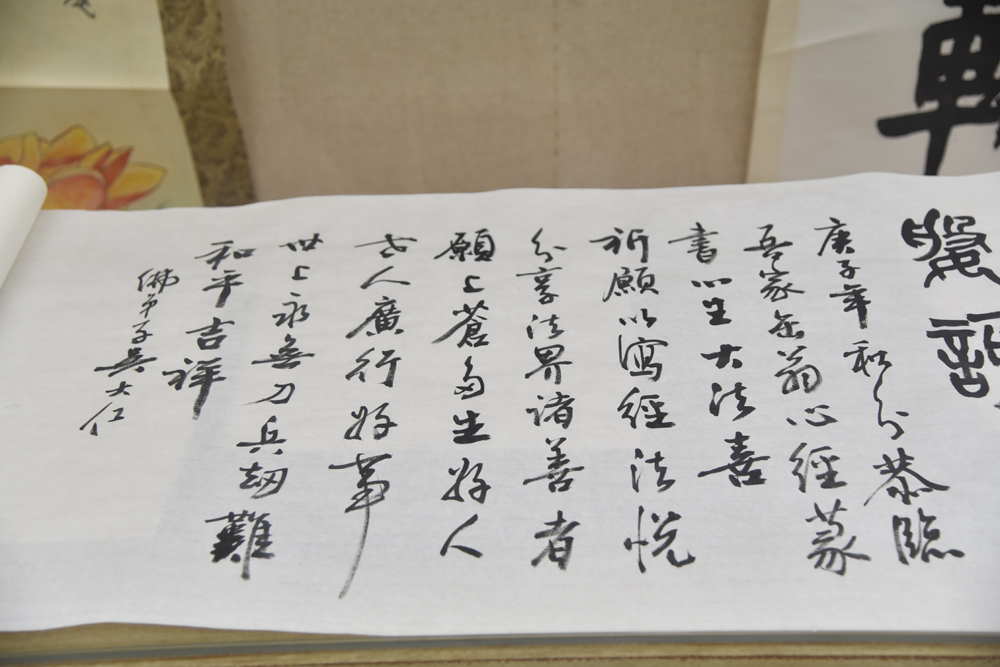 庚子年秋分恭臨
吾家缶翁心經篆
書心生大法喜
祈願以寫經法悅
分享法界諸善者
願上蒼多生好人
人廣行好事
世上永無刀兵劫難
和平吉祥
佛弟子吳大仁